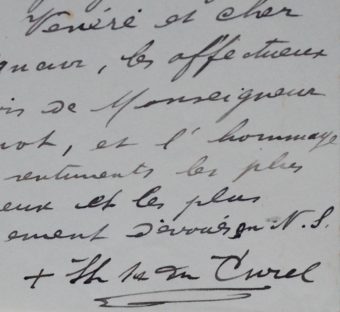 Vénéré et cher
gneur, les affectueux
is de Monseigneur
not, et l'hommage
sentiments les plus
eux et les plus
ement dévoués en N. S.
+ du Curel